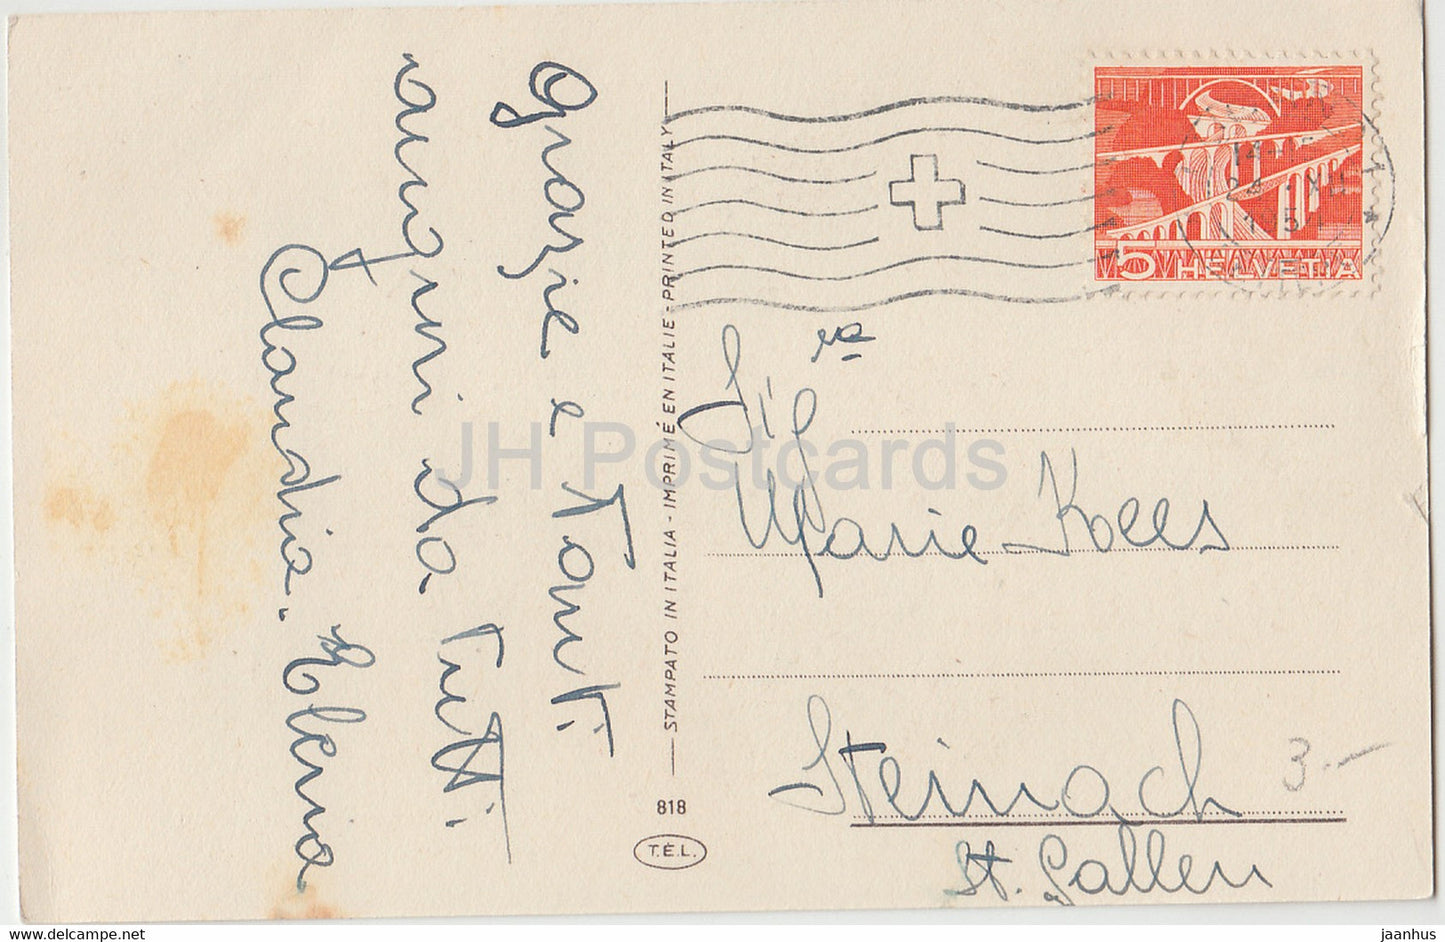 Grazie e Tanti
auguri da Tutti
Claudia. Elena
STAMPATO IN ITALIA - IMPRIMÉ EN ITALIE - PRINTED IN ITALY
818
T.E.L.
5 HELVETIA
Sig ra
Marie Kees
Steinach
St. Gallen
3.-
JH Postcards
www.delcampe.net
jaanhus